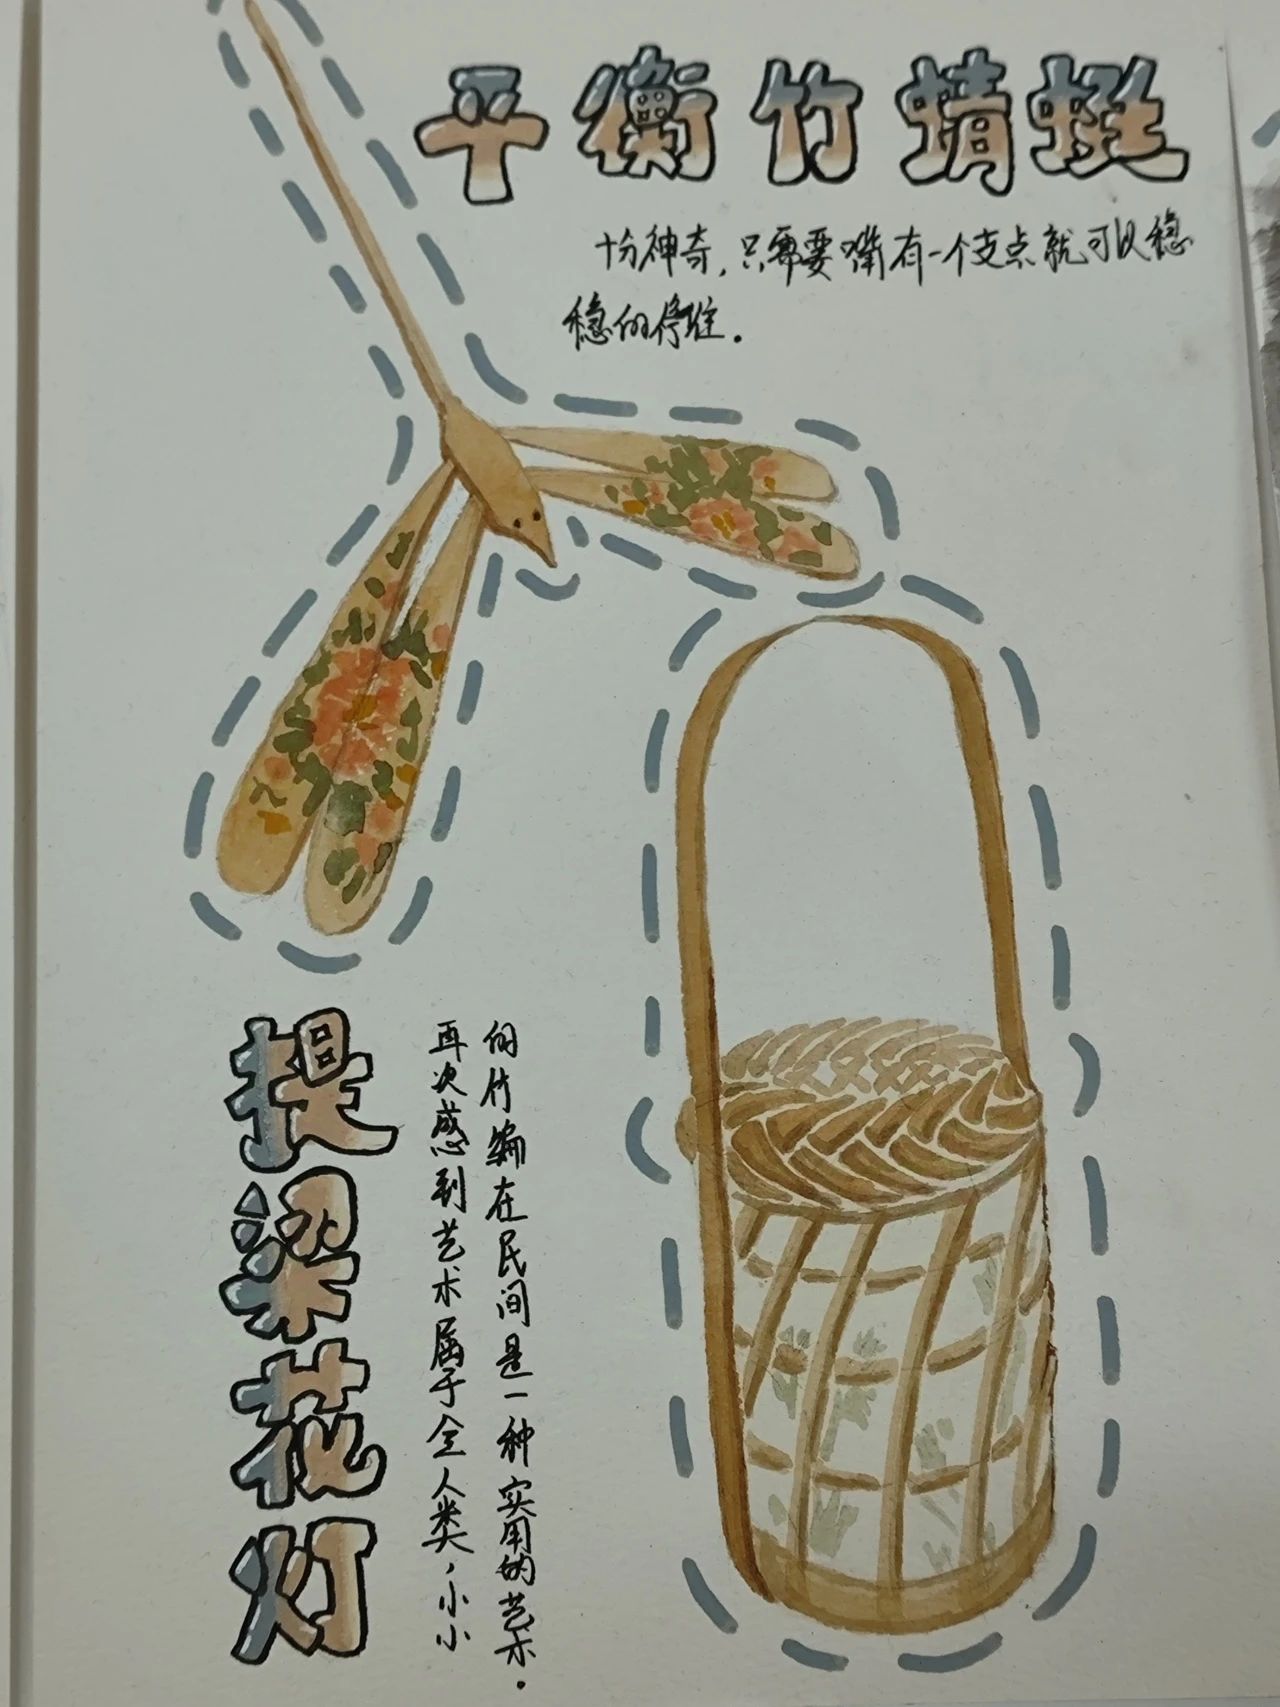 平衡竹蜻蜓
十分神奇，只需要嘴有一个支点就可以稳
稳的停住.
提梁花灯
再次感到艺术属于全人类，小小
的竹编在民间是一种实用的艺术.